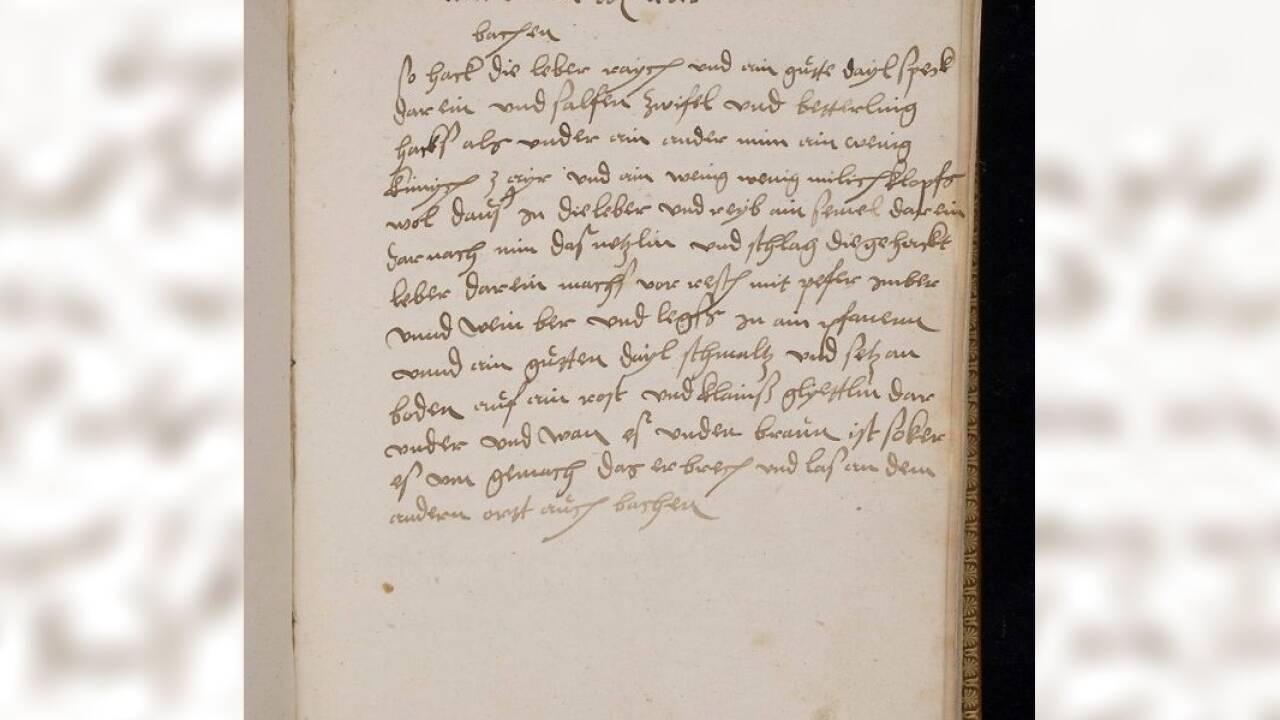 bachen
so hack die leber raÿch und ain gůtte dayl speck
dar ein und salfen zwifel und betterling
hacks als under ain ander nim ain wenig
kimich 3 ayr und ain wenig wenig milich klopfs
wol daus in die leber und reyb ain semel dar ein
dar nach nim das netzlin und schlag die gehackt
leber dar ein machs vor resch mit pefer imber
unnd wein ber und legss in ain pfanenn
unnd ain gůtten dayl schmaltz und setz an
boden auf ain rost und klainss glyettlin dar
under und wan es unden braun ist so ker
es um gemach das er brech und las an dem
andern ortt auch bachen